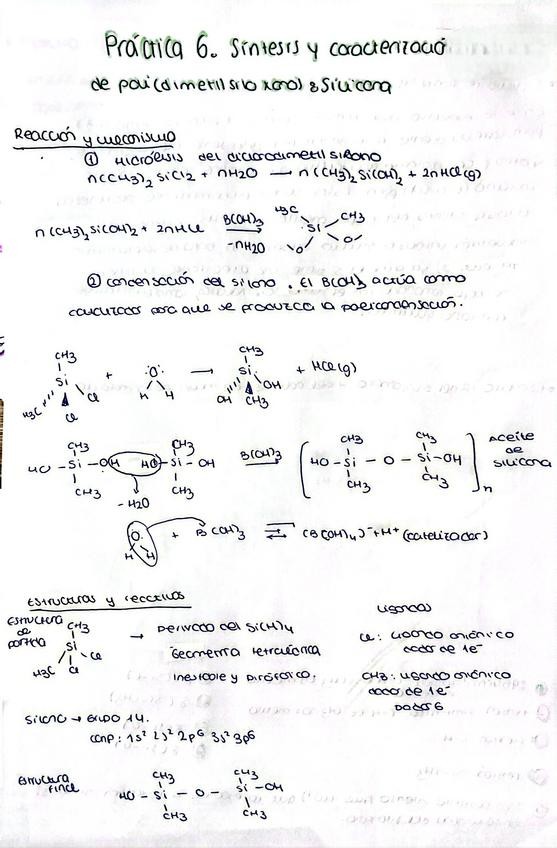 Práctica 6. Síntesis y caracterizació
de poli(dimetilsiloxano) & Silicona
Reacción y mecanismo
① Hidrólisis del diclorodimetilsilano
n(CH3)2 SiCl2 + nH2O → n(CH3)2 Si(OH)2 + 2nHCl(g)
n(CH3)2Si(OH)2 + 2nHCl B(OH)3 -nH2O H3C CH3 Si O O-
② condensación del silano. El B(OH)3 actúa como
catalizador para que se produzca la policondensación.
CH3 Si H3C Cl Cl + :O: H H → CH3 Si OH OH CH3 + HCl(g)
HO - Si - OH HO - Si - OH B(OH)3 HO - Si - O - Si - OH n Aceite de silicona
CH3 CH3 CH3 CH3 CH3 CH3 CH3 CH3
- H2O
O H H + B(OH)3 ⇌ (B(OH)4)⁻ + H⁺ (catalizador)
Estructuras y reactivos
Estructura de partida CH3 Si H3C Cl Cl
→ Derivado del Si(H)4
Geometría tetraédrica
Inestable y pirofórico.
Ligandos
Cl: ligando aniónico
dador de 1e⁻
CH3: ligando aniónico
dador de 1e⁻
dador б
Silano → Grupo 14.
conf: 1s² 2s² 2p⁶ 3s² 3p⁶
Estructura final
CH3 CH3
HO - Si - O - Si - OH
CH3 CH3